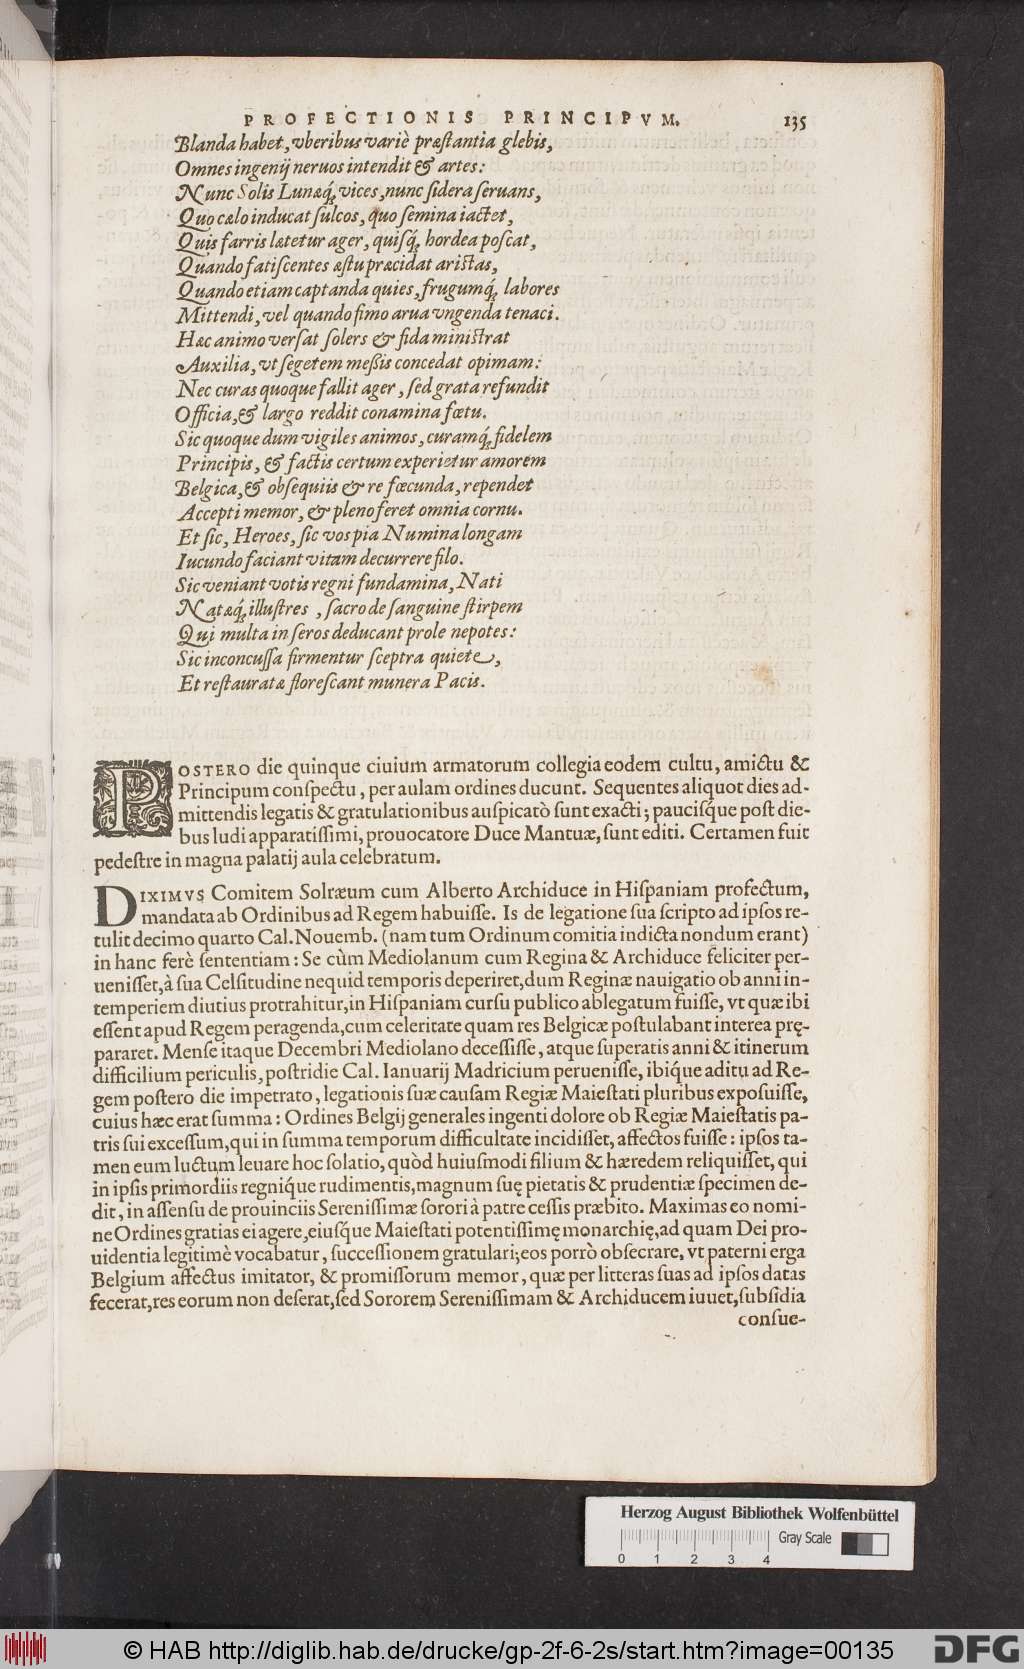 PROFECTIONIS PRINCIPVM. 135
Blanda habet, vberibus variè præstantia glebis,
Omnes ingenij neruos intendit & artes:
Nunc Solis Lunæq́; vices, nunc sidera seruans,
Quo cælo inducat sulcos, quo semina iactet,
Quis farris lætetur ager, quisq́; hordea poscat,
Quando fatiscentes æstu præcidat aristas,
Quando etiam captanda quies, frugumq́; labores
Mittendi, vel quando fimo arua vngenda tenaci.
Hæc animo versat solers & fida ministrat
Auxilia, vt segetem meßis concedat opimam:
Nec curas quoque fallit ager, sed grata refundit
Officia, & largo reddit conamina fœtu.
Sic quoque dum vigiles animos, curamq́; fidelem
Principis, & factis certum experietur amorem
Belgica, & obsequiis & re fœcunda, rependet
Accepti memor, & pleno feret omnia cornu.
Et sic, Heroes, sic vos pia Numina longam
Iucundo faciant vitam decurrere filo.
Sic veniant votis regni fundamina, Nati
Natæq́; illustres, sacro de sanguine stirpem
Qui multa in seros deducant prole nepotes:
Sic inconcussa firmentur sceptra quiete,
Et restauratæ florescant munera Pacis.
POSTERO die quinque ciuium armatorum collegia eodem cultu, amictu &
Principum conspectu, per aulam ordines ducunt. Sequentes aliquot dies ad-
mittendis legatis & gratulationibus auspicatò sunt exacti; paucisq́ue post die-
bus ludi apparatissimi, prouocatore Duce Mantuæ, sunt editi. Certamen fuit
pedestre in magna palatij aula celebratum.
DIXIMVS Comitem Solræum cum Alberto Archiduce in Hispaniam profectum,
mandata ab Ordinibus ad Regem habuisse. Is de legatione sua scripto ad ipsos re-
tulit decimo quarto Cal. Nouemb. (nam tum Ordinum comitia indicta nondum erant)
in hanc ferè sententiam: Se cùm Mediolanum cum Regina & Archiduce feliciter per-
uenisset, à sua Celsitudine nequid temporis deperiret, dum Reginæ nauigatio ob anni in-
temperiem diutius protrahitur, in Hispaniam cursu publico ablegatum fuisse, vt quæ ibi
essent apud Regem peragenda, cum celeritate quam res Belgicæ postulabant interea prę
pararet. Mense itaque Decembri Mediolano decessisse, atque superatis anni & itinerum
difficilium periculis, postridie Cal. Ianuarij Madricium peruenisse, ibiq́ue aditu ad Re-
gem postero die impetrato, legationis suæ causam Regiæ Maiestati pluribus exposuisse,
cuius hæc erat summa: Ordines Belgij generales ingenti dolore ob Regiæ Maiestatis pa-
tris sui excessum, qui in summa temporum difficultate incidisset, affectos fuisse: ipsos ta-
men eum luctum leuare hoc solatio, quòd huiusmodi filium & hæredem reliquisset, qui
in ipsis primordiis regniq́ue rudimentis, magnum suę pietatis & prudentiæ specimen de-
dit, in assensu de prouinciis Serenissimæ sorori à patre cessis præbito. Maximas eo nomi-
ne Ordines gratias ei agere, eiusq́ue Maiestati potentissimę monarchię, ad quam Dei pro-
uidentia legitimè vocabatur, successionem gratulari; eos porrò obsecrare, vt paterni erga
Belgium affectus imitator, & promissorum memor, quæ per litteras suas ad ipsos datas
fecerat, res eorum non deserat, sed Sororem Serenissimam & Archiducem iuuet, subsidia
consue-
Herzog August Bibliothek Wolfenbüttel
Gray Scale
0 1 2 3 4
© HAB http://diglib.hab.de/drucke/gp-2f-6-2s/start.htm?image=00135
DFG